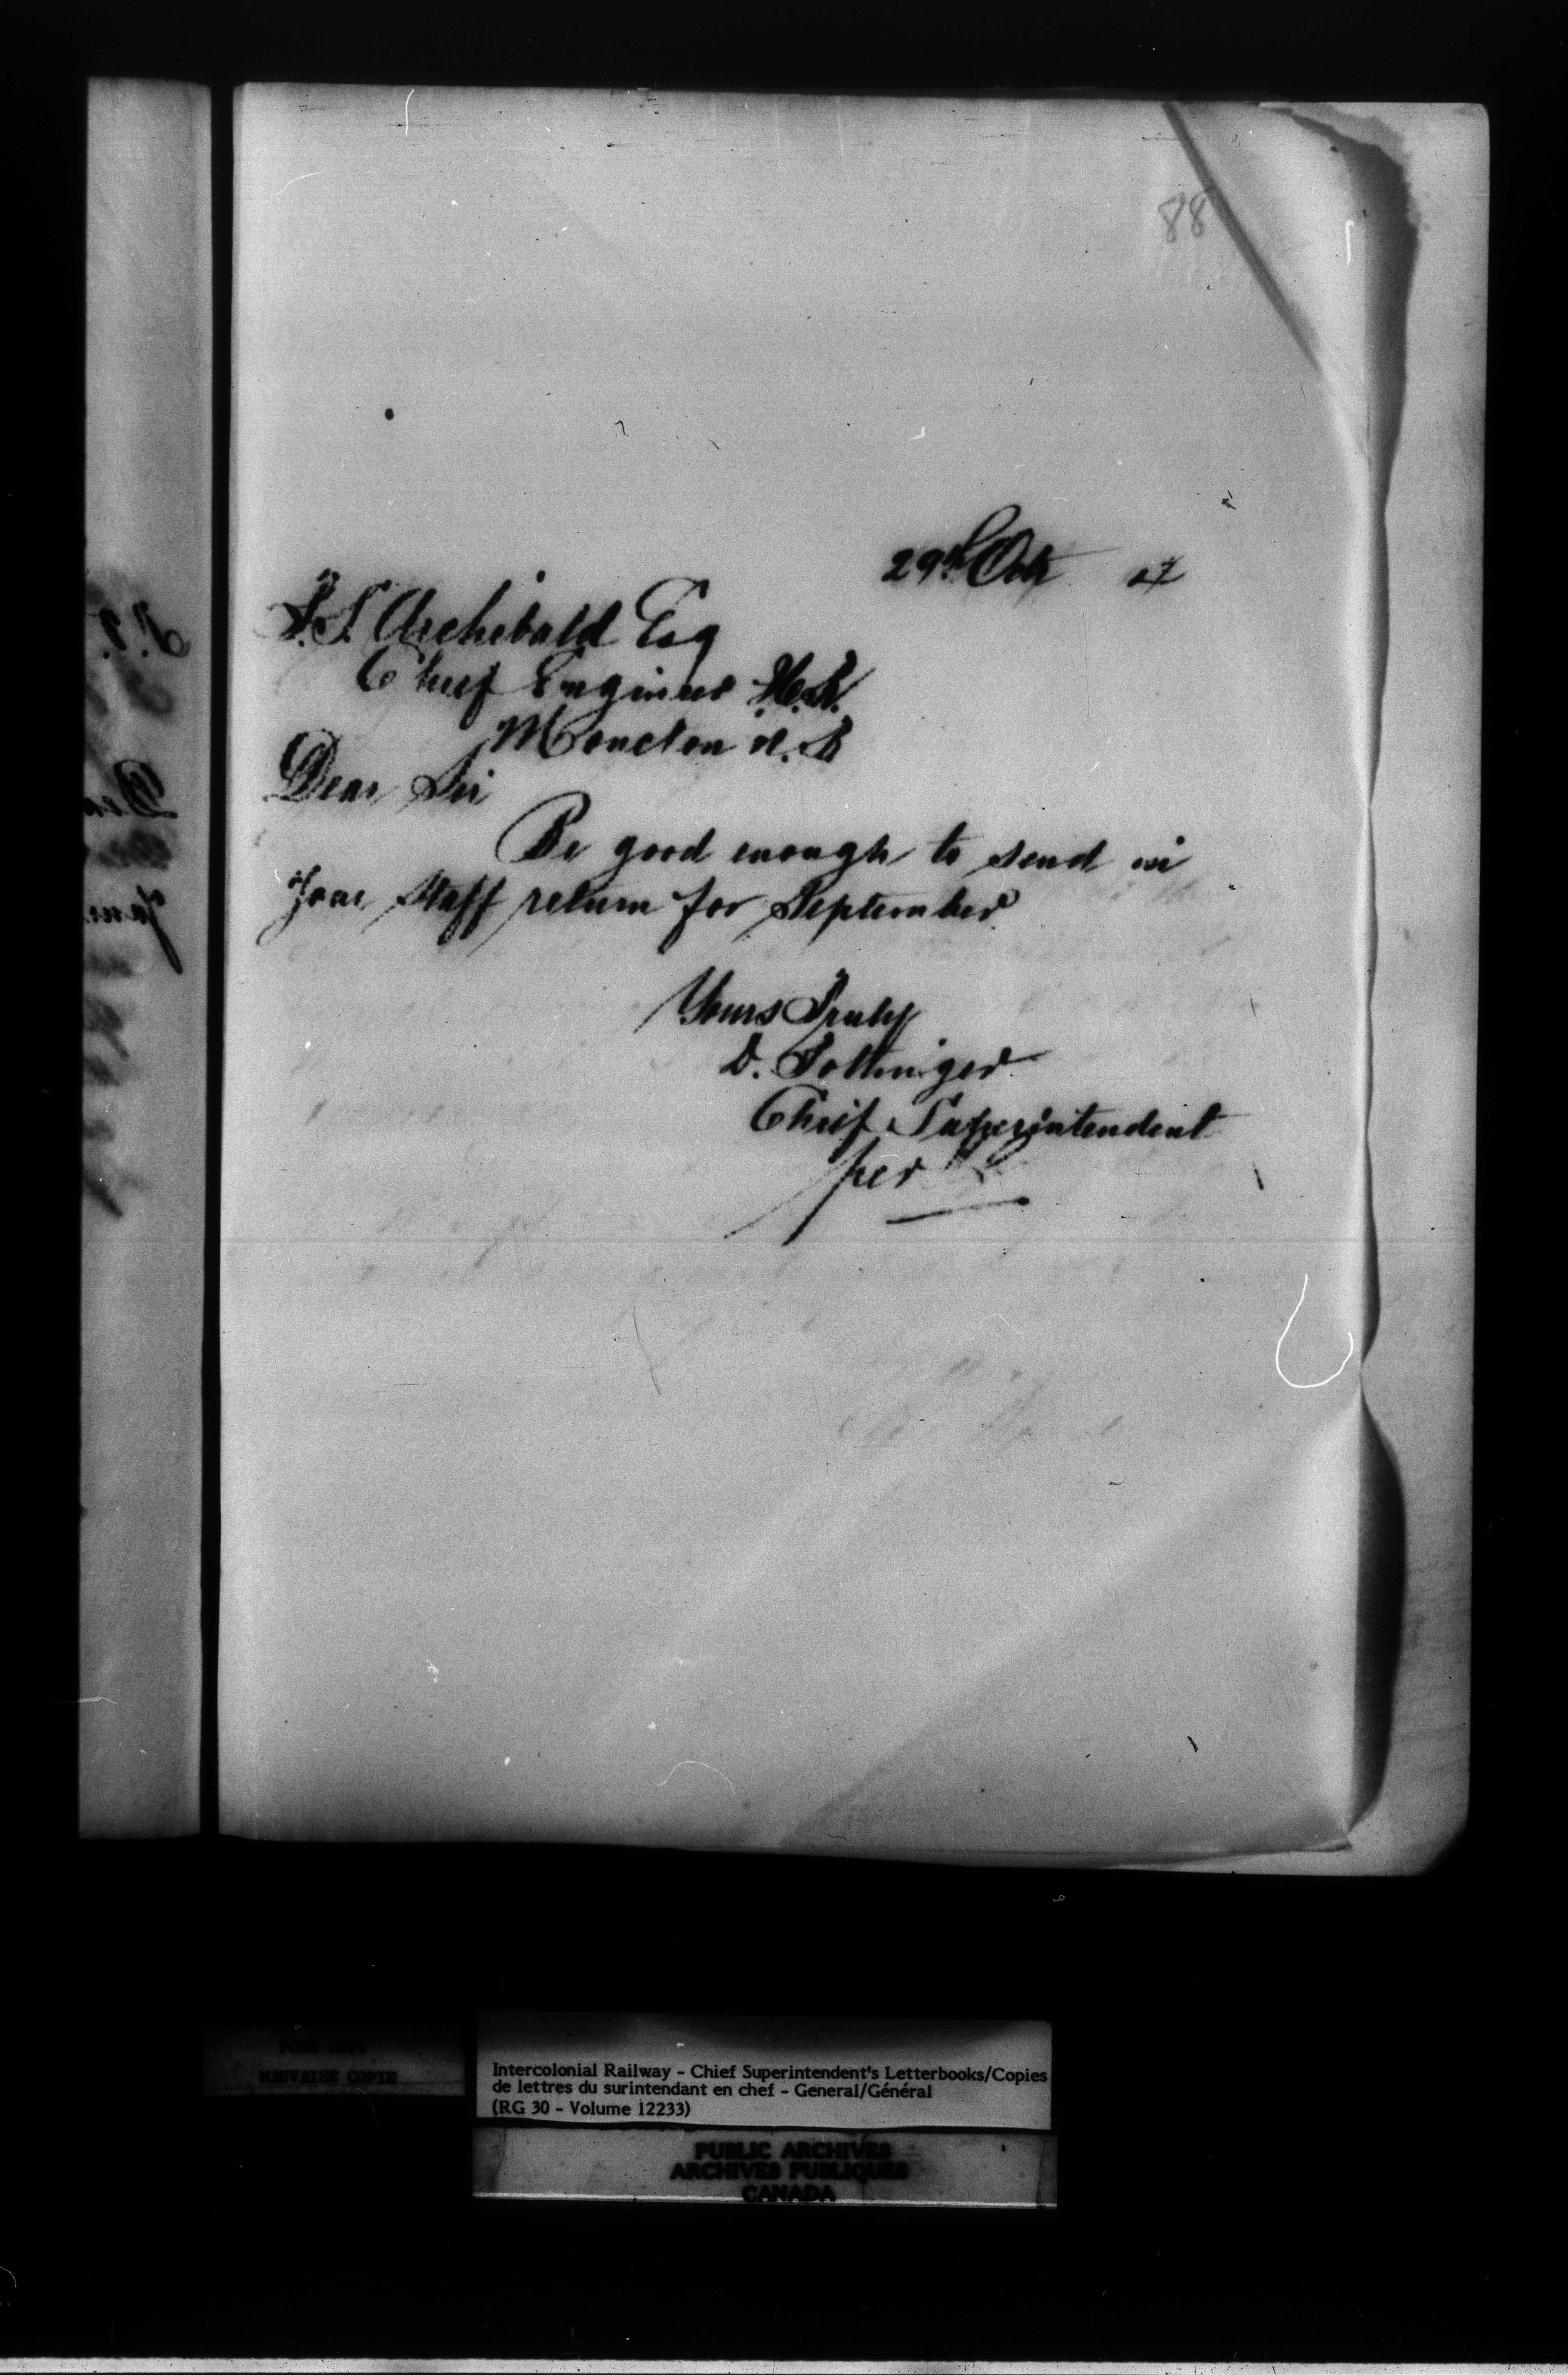 88
29th Oct
P.S. Archibald Esq
Chief Engineer
Moncton N.B
Dear Sir
Be good enough to send in
your Staff return for September
Yours Truly
D. Pottinger
Chief Superintendent
per
POOR COPY
MAUVAISE COPIE
Intercolonial Railway - Chief Superintendent's Letterbooks/Copies
de lettres du surintendant en chef - General/Général
(RG 30 - Volume 12233)
PUBLIC ARCHIVES
ARCHIVES PUBLIQUES
CANADA